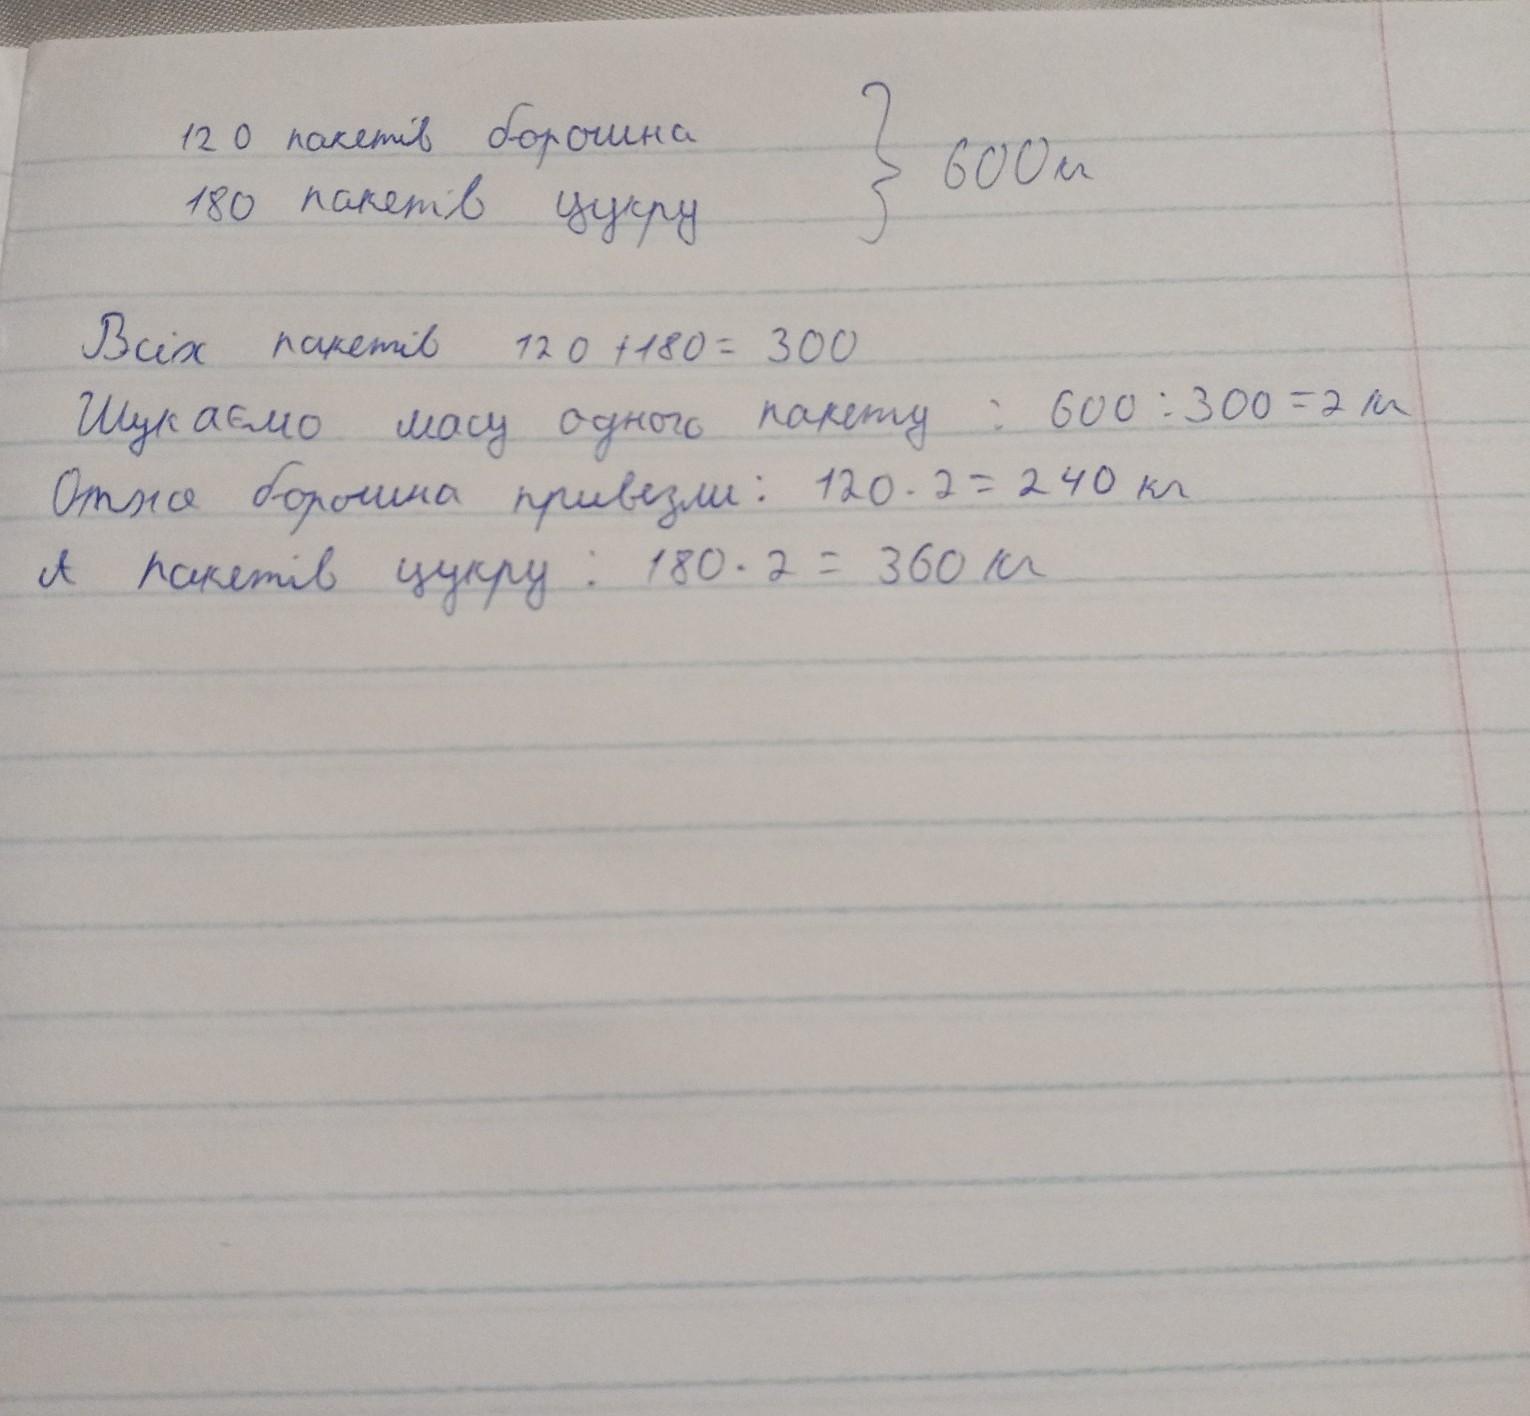 120 пакетів борошна
180 пакетів цукру } 600кг
Всіх пакетів 120+180= 300
Шукаємо масу одного пакету : 600:300=2 кг
Отже борошна привезли: 120·2=240 кг
А пакетів цукру : 180·2 = 360 кг